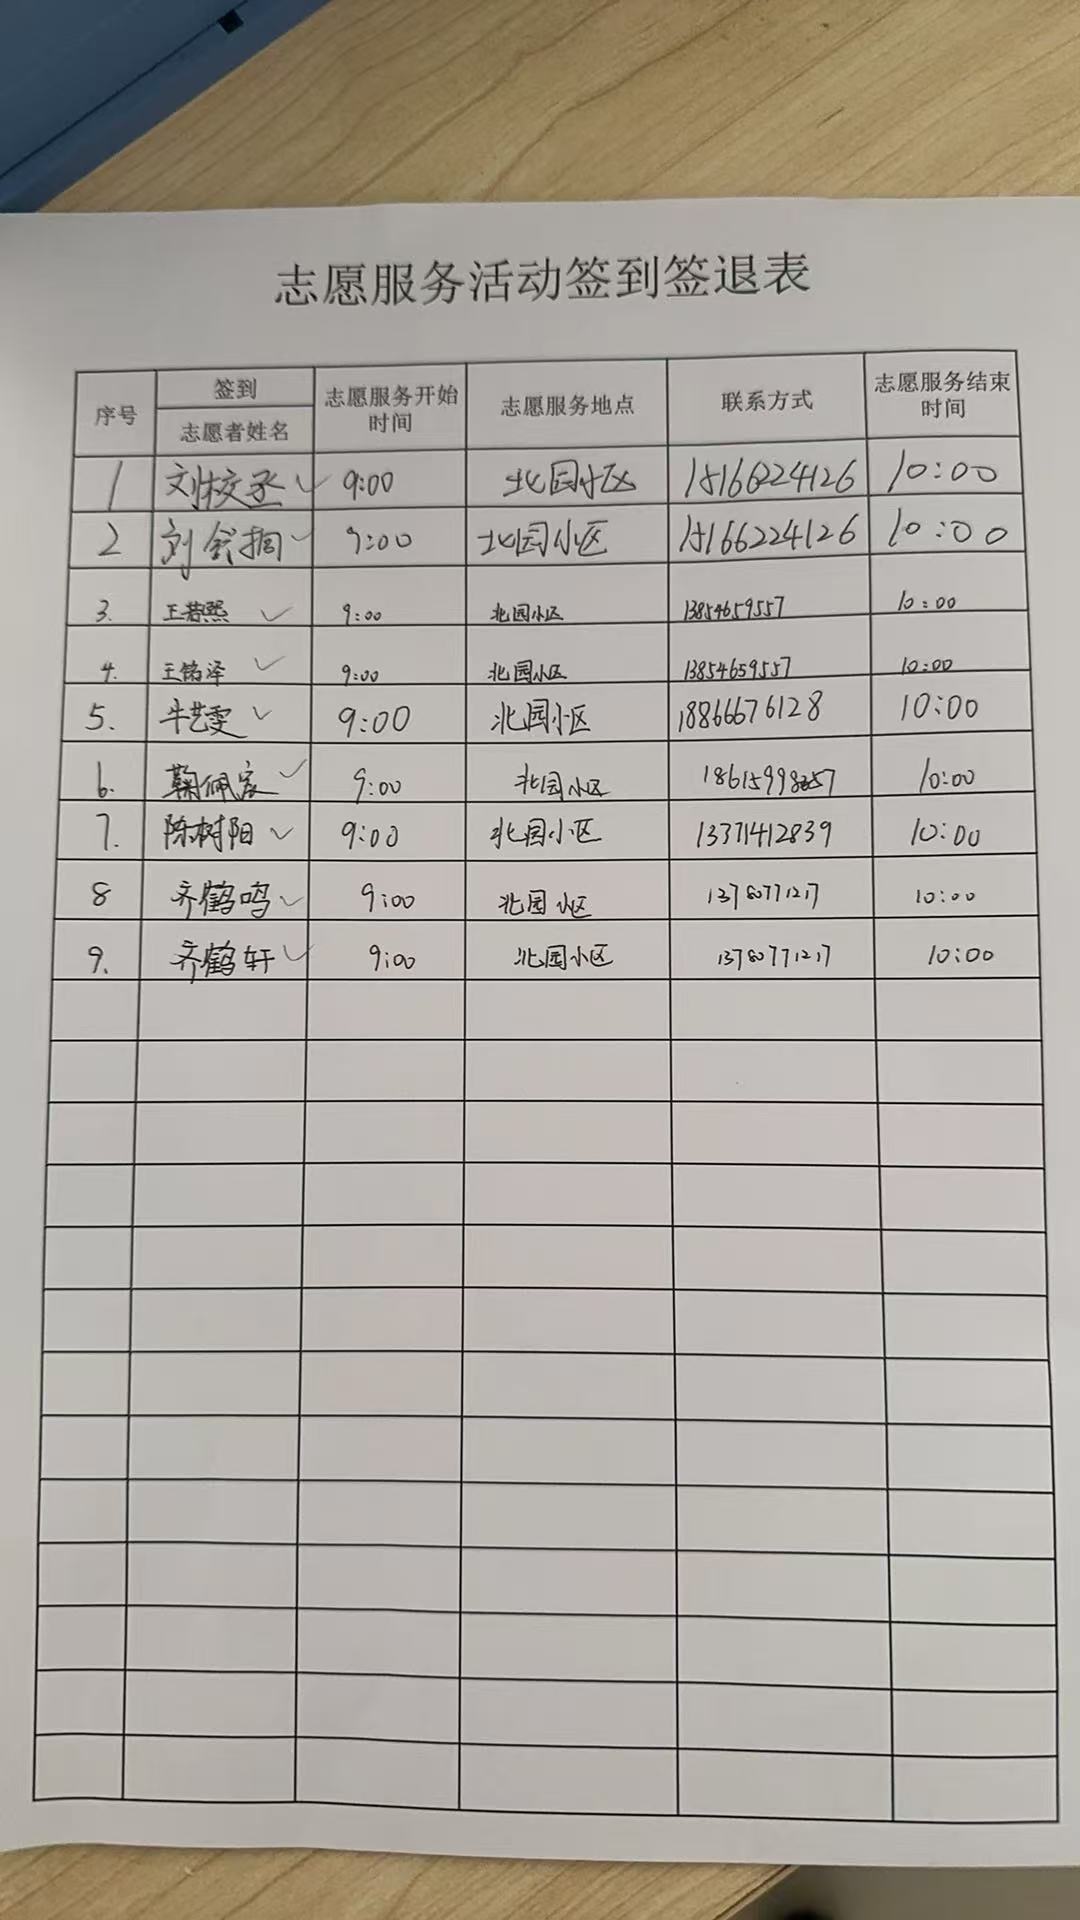 志愿服务活动签到签退表
序号 签到 志愿者姓名 志愿服务开始时间 志愿服务地点 联系方式 志愿服务结束时间
1 刘校丞 9:00 北园小区 15166224126 10:00
2 刘 9:00 北园小区 15166224126 10:00
3. 王若熙 9:00 北园小区 13854659557 10:00
4. 王铭泽 9:00 北园小区 13854659557 10:00
5. 牛艺雯 9:00 北园小区 18866676128 10:00
6. 鞠佩宸 9:00 北园小区 10:00
7. 陈树阳 9:00 北园小区 13371412839 10:00
8 齐鹤鸣 9:00 北园小区 13780771217 10:00
9. 齐鹤轩 9:00 北园小区 13780771217 10:00